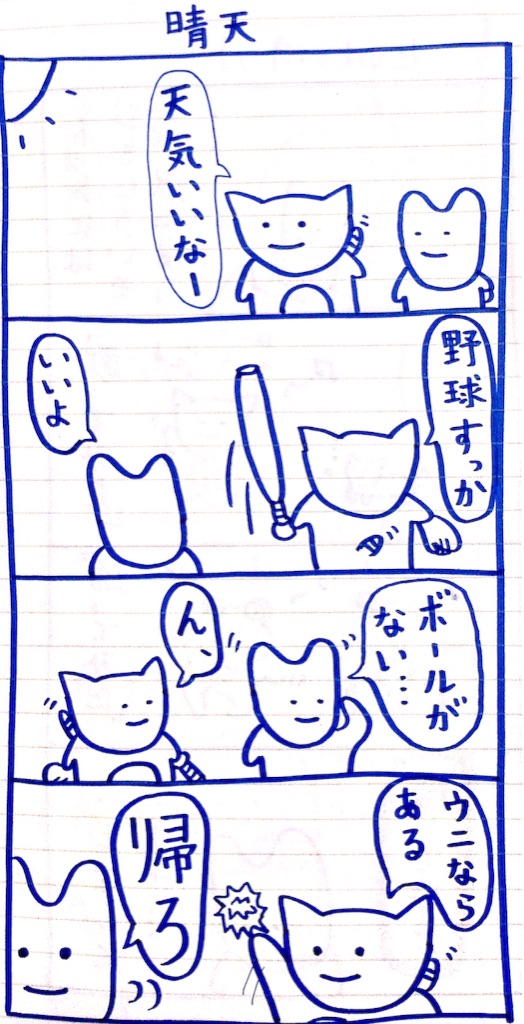 晴天
天気いいなー
野球すっか
いいよ
ボールが
ない…
ん、
ウニなら
ある
帰ろ